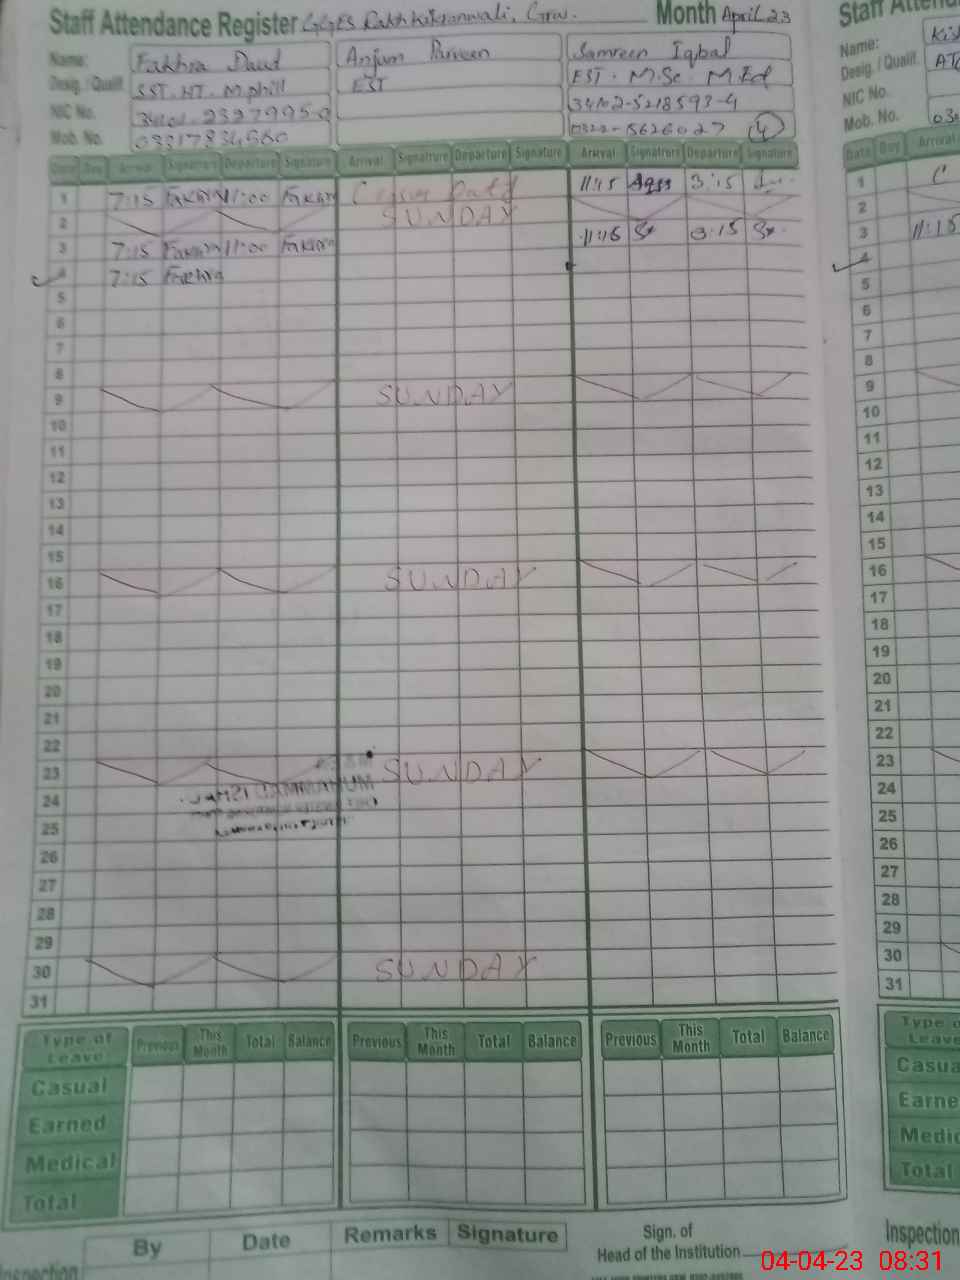 Staff Attendance Register GGES Month April 23
Name: Fakhra Daud Anjum Parveen Samreen Iqbal
Desig. / Qualif. SST. HT. M.phill EST EST. M.Sc. M.Ed
NIC No. 34102-5218593-4
Mob. No. 03217834560 0322-5626027 4
Date Day Arrival Signatrure Departure Signature Arrival Signatrure Departure Signature Arrival Signatrure Departure Signature
1 7:15 Fakhra 11:00 Fakhra 11:15 3:15
2 SUNDAY
3 7:15 Fakhra 11:00 Fakhra 11:15 3:15
4 7:15 Fakhra
5
6
7
8
9 SUNDAY
10
11
12
13
14
15
16 SUNDAY
17
18
19
20
21
22
23 SUNDAY
24 MUHAMMAD
25
26
27
28
29
30 SUNDAY
31
Type of Leave Previous This Month Total Balance Previous This Month Total Balance Previous This Month Total Balance
Casual
Earned
Medical
Total
Inspection By Date Remarks Signature
Sign. of
Head of the Institution
Staff Atten
Name:
Desig. / Qualif.
NIC No.
Mob. No.
Date Day Arrival
1 C
2
3 11:15
4
5
6
7
8
9
10
11
12
13
14
15
16
17
18
19
20
21
22
23
24
25
26
27
28
29
30
31
Type o
Leave
Casua
Earne
Medic
Total
Inspection
04-04-23 08:31